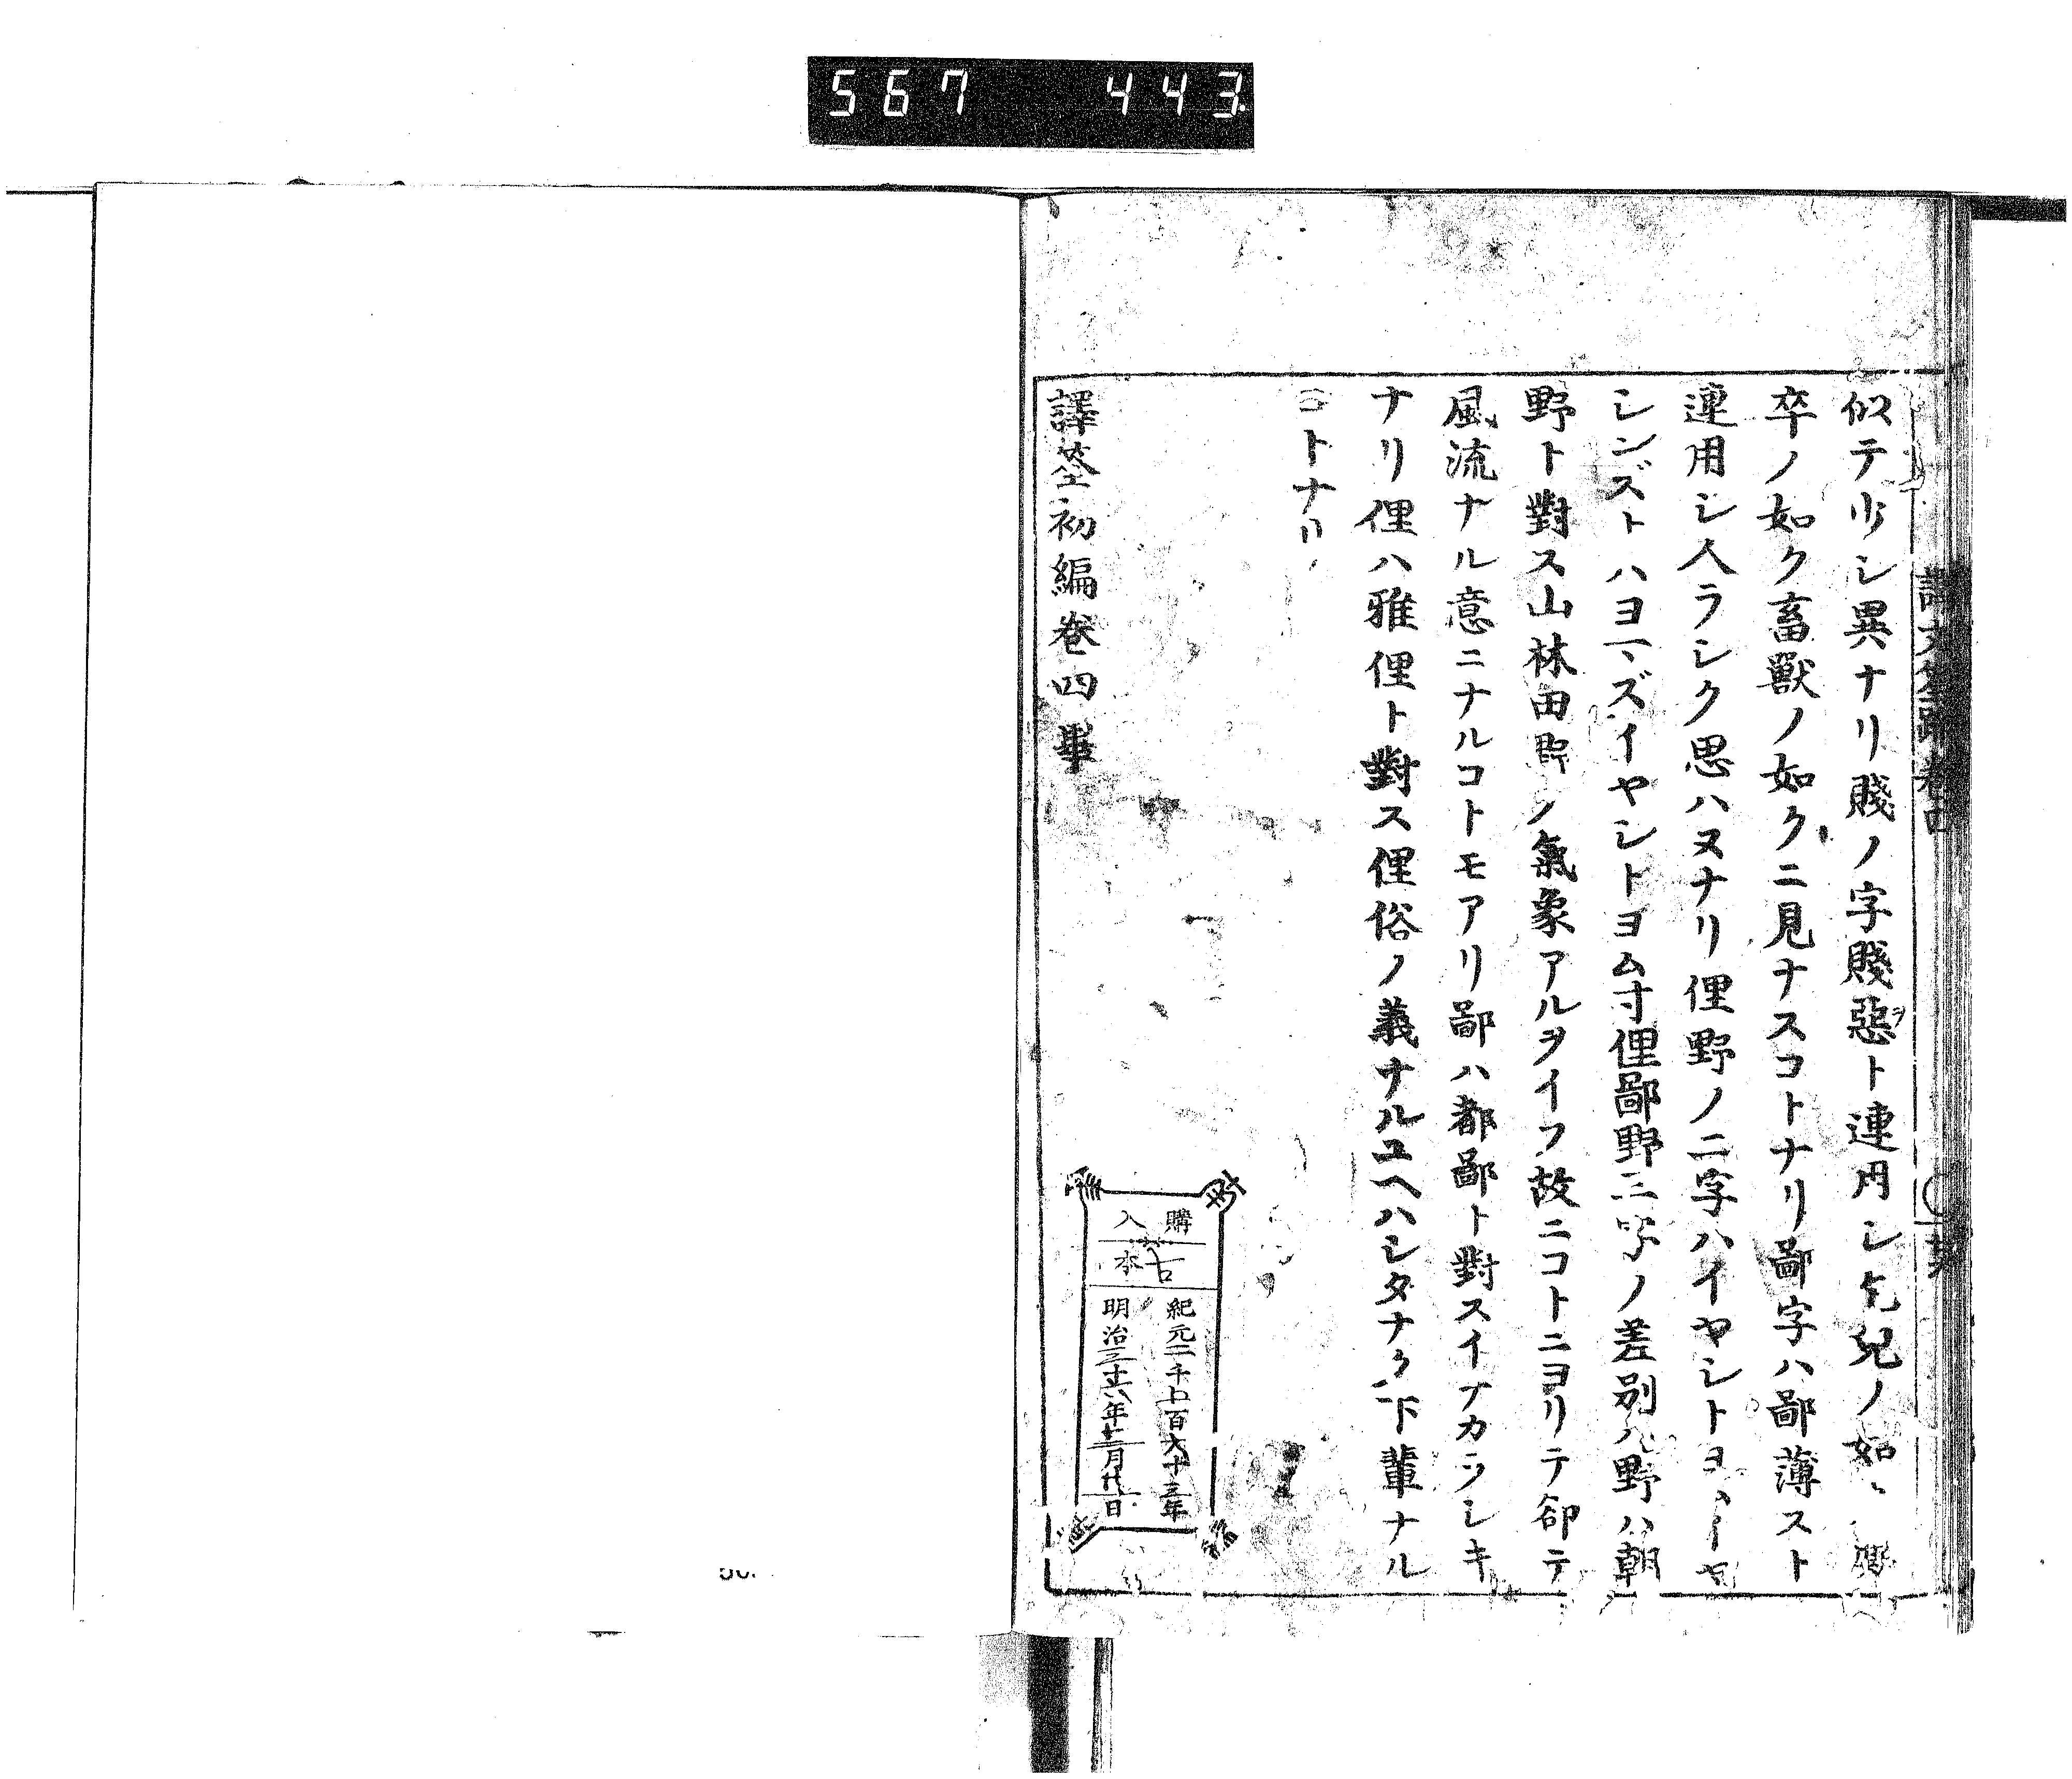 567 443
似テ少シ異ナリ賤ノ字賤惡ト連用シ乞兒ノ如
卒ノ如ク畜獸ノ如クニ見ナスコトナリ鄙字ハ鄙薄スト
連用シ人ラシク思ハヌナリ俚野ノ二字ハイヤシトヨ
シンズトハヨマズイヤシトヨム寸俚鄙野三字ノ差別ハ野ハ朝
野ト對ス山林田野ノ氣象アルヲイフ故ニコトニヨリテ卻テ
風流ナル意ニナルコトモアリ鄙ハ都鄙ト對スイナカラシキ
ナリ俚ハ雅俚ト對ス俚俗ノ義ナルユヘハシタナク下輩ナル
コトナリ
譯筌初編卷四畢
購入
古本
紀元二千五百六十三年
明治三十六年十二月廿日